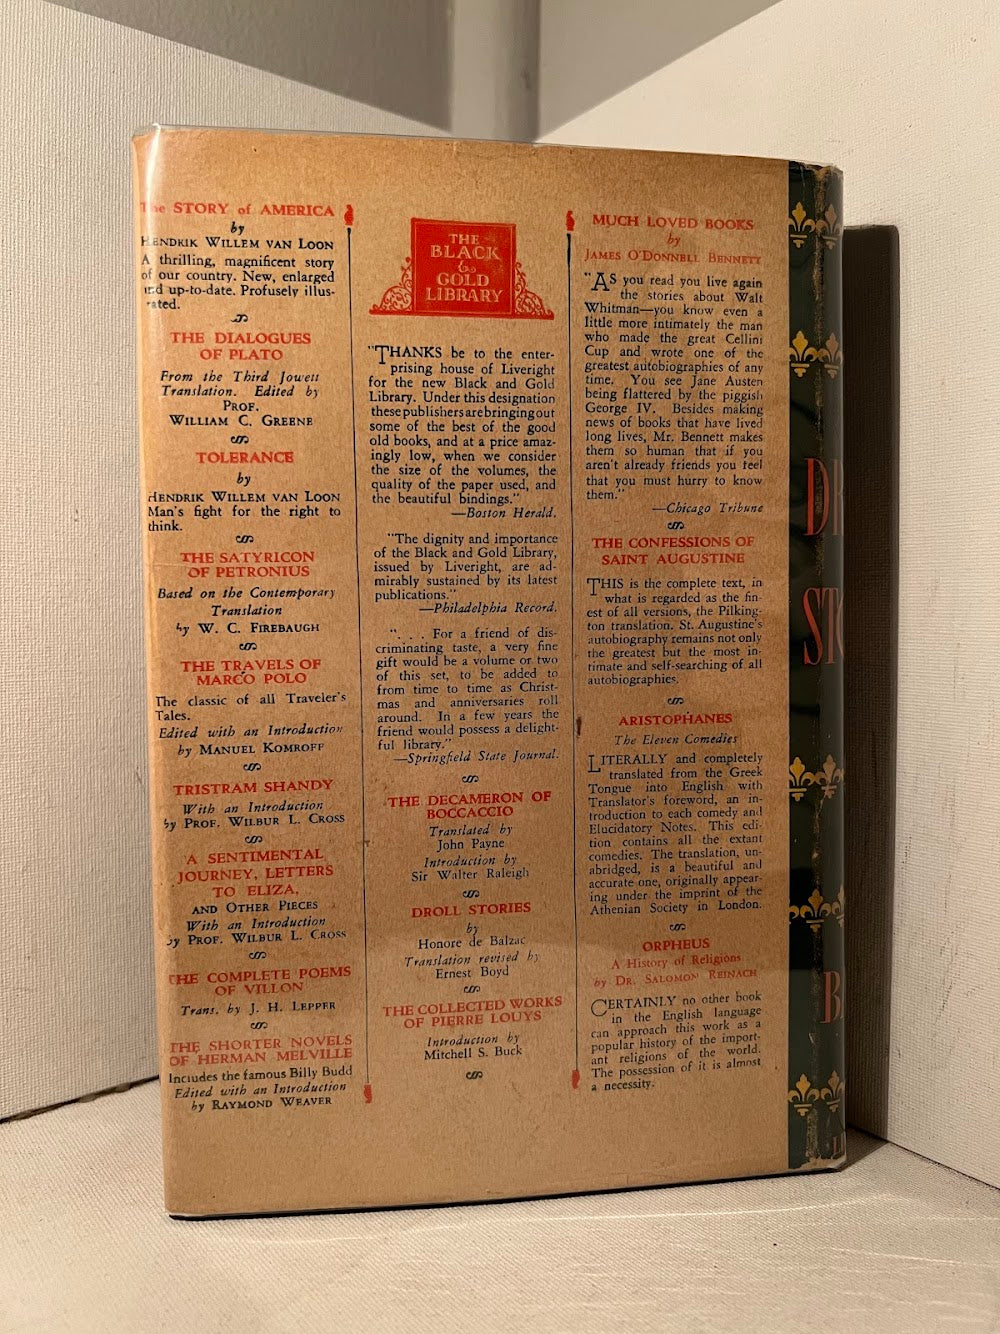 The STORY of AMERICA
by
HENDRIK WILLEM VAN LOON
A thrilling, magnificent story
of our country. New, enlarged
and up-to-date. Profusely illus-
rated.
THE DIALOGUES
OF PLATO
From the Third Jowett
Translation. Edited by
PROF.
WILLIAM C. GREENE
TOLERANCE
by
HENDRIK WILLEM VAN LOON
Man's fight for the right to
think.
THE SATYRICON
OF PETRONIUS
Based on the Contemporary
Translation
by W. C. FIREBAUGH
THE TRAVELS OF
MARCO POLO
The classic of all Traveler's
Tales.
Edited with an Introduction
by MANUEL KOMROFF
TRISTRAM SHANDY
With an Introduction
by PROF. WILBUR L. CROSS
A SENTIMENTAL
JOURNEY, LETTERS
TO ELIZA,
AND OTHER PIECES
With an Introduction
by PROF. WILBUR L. CROSS
THE COMPLETE POEMS
OF VILLON
Trans. by J. H. LEPPER
THE SHORTER NOVELS
OF HERMAN MELVILLE
Includes the famous Billy Budd
Edited with an Introduction
by RAYMOND WEAVER
THE
BLACK
&
GOLD
LIBRARY
"THANKS be to the enter-
prising house of Liveright
for the new Black and Gold
Library. Under this designation
these publishers are bringing out
some of the best of the good
old books, and at a price amaz-
ingly low, when we consider
the size of the volumes, the
quality of the paper used, and
the beautiful bindings."
—Boston Herald.
"The dignity and importance
of the Black and Gold Library,
issued by Liveright, are ad-
mirably sustained by its latest
publications."
—Philadelphia Record.
". . . For a friend of dis-
criminating taste, a very fine
gift would be a volume or two
of this set, to be added to
from time to time as Christ-
mas and anniversaries roll
around. In a few years the
friend would possess a delight-
ful library."
—Springfield State Journal.
THE DECAMERON OF
BOCCACCIO
Translated by
John Payne
Introduction by
Sir Walter Raleigh
DROLL STORIES
by
Honore de Balzac
Translation revised by
Ernest Boyd
THE COLLECTED WORKS
OF PIERRE LOUYS
Introduction by
Mitchell S. Buck
MUCH LOVED BOOKS
by
JAMES O'DONNELL BENNETT
"AS you read you live again
the stories about Walt
Whitman—you know even a
little more intimately the man
who made the great Cellini
Cup and wrote one of the
greatest autobiographies of any
time. You see Jane Austen
being flattered by the piggish
George IV. Besides making
news of books that have lived
long lives, Mr. Bennett makes
them so human that if you
aren't already friends you feel
that you must hurry to know
them."
—Chicago Tribune
THE CONFESSIONS OF
SAINT AUGUSTINE
THIS is the complete text, in
what is regarded as the fin-
est of all versions, the Pilking-
ton translation. St. Augustine's
autobiography remains not only
the greatest but the most in-
timate and self-searching of all
autobiographies.
ARISTOPHANES
The Eleven Comedies
LITERALLY and completely
translated from the Greek
Tongue into English with
Translator's foreword, an in-
troduction to each comedy and
Elucidatory Notes. This edi-
tion contains all the extant
comedies. The translation, un-
abridged, is a beautiful and
accurate one, originally appear-
ing under the imprint of the
Athenian Society in London.
ORPHEUS
A History of Religions
by DR. SALOMON REINACH
CERTAINLY no other book
in the English language
can approach this work as a
popular history of the import-
ant religions of the world.
The possession of it is almost
a necessity.